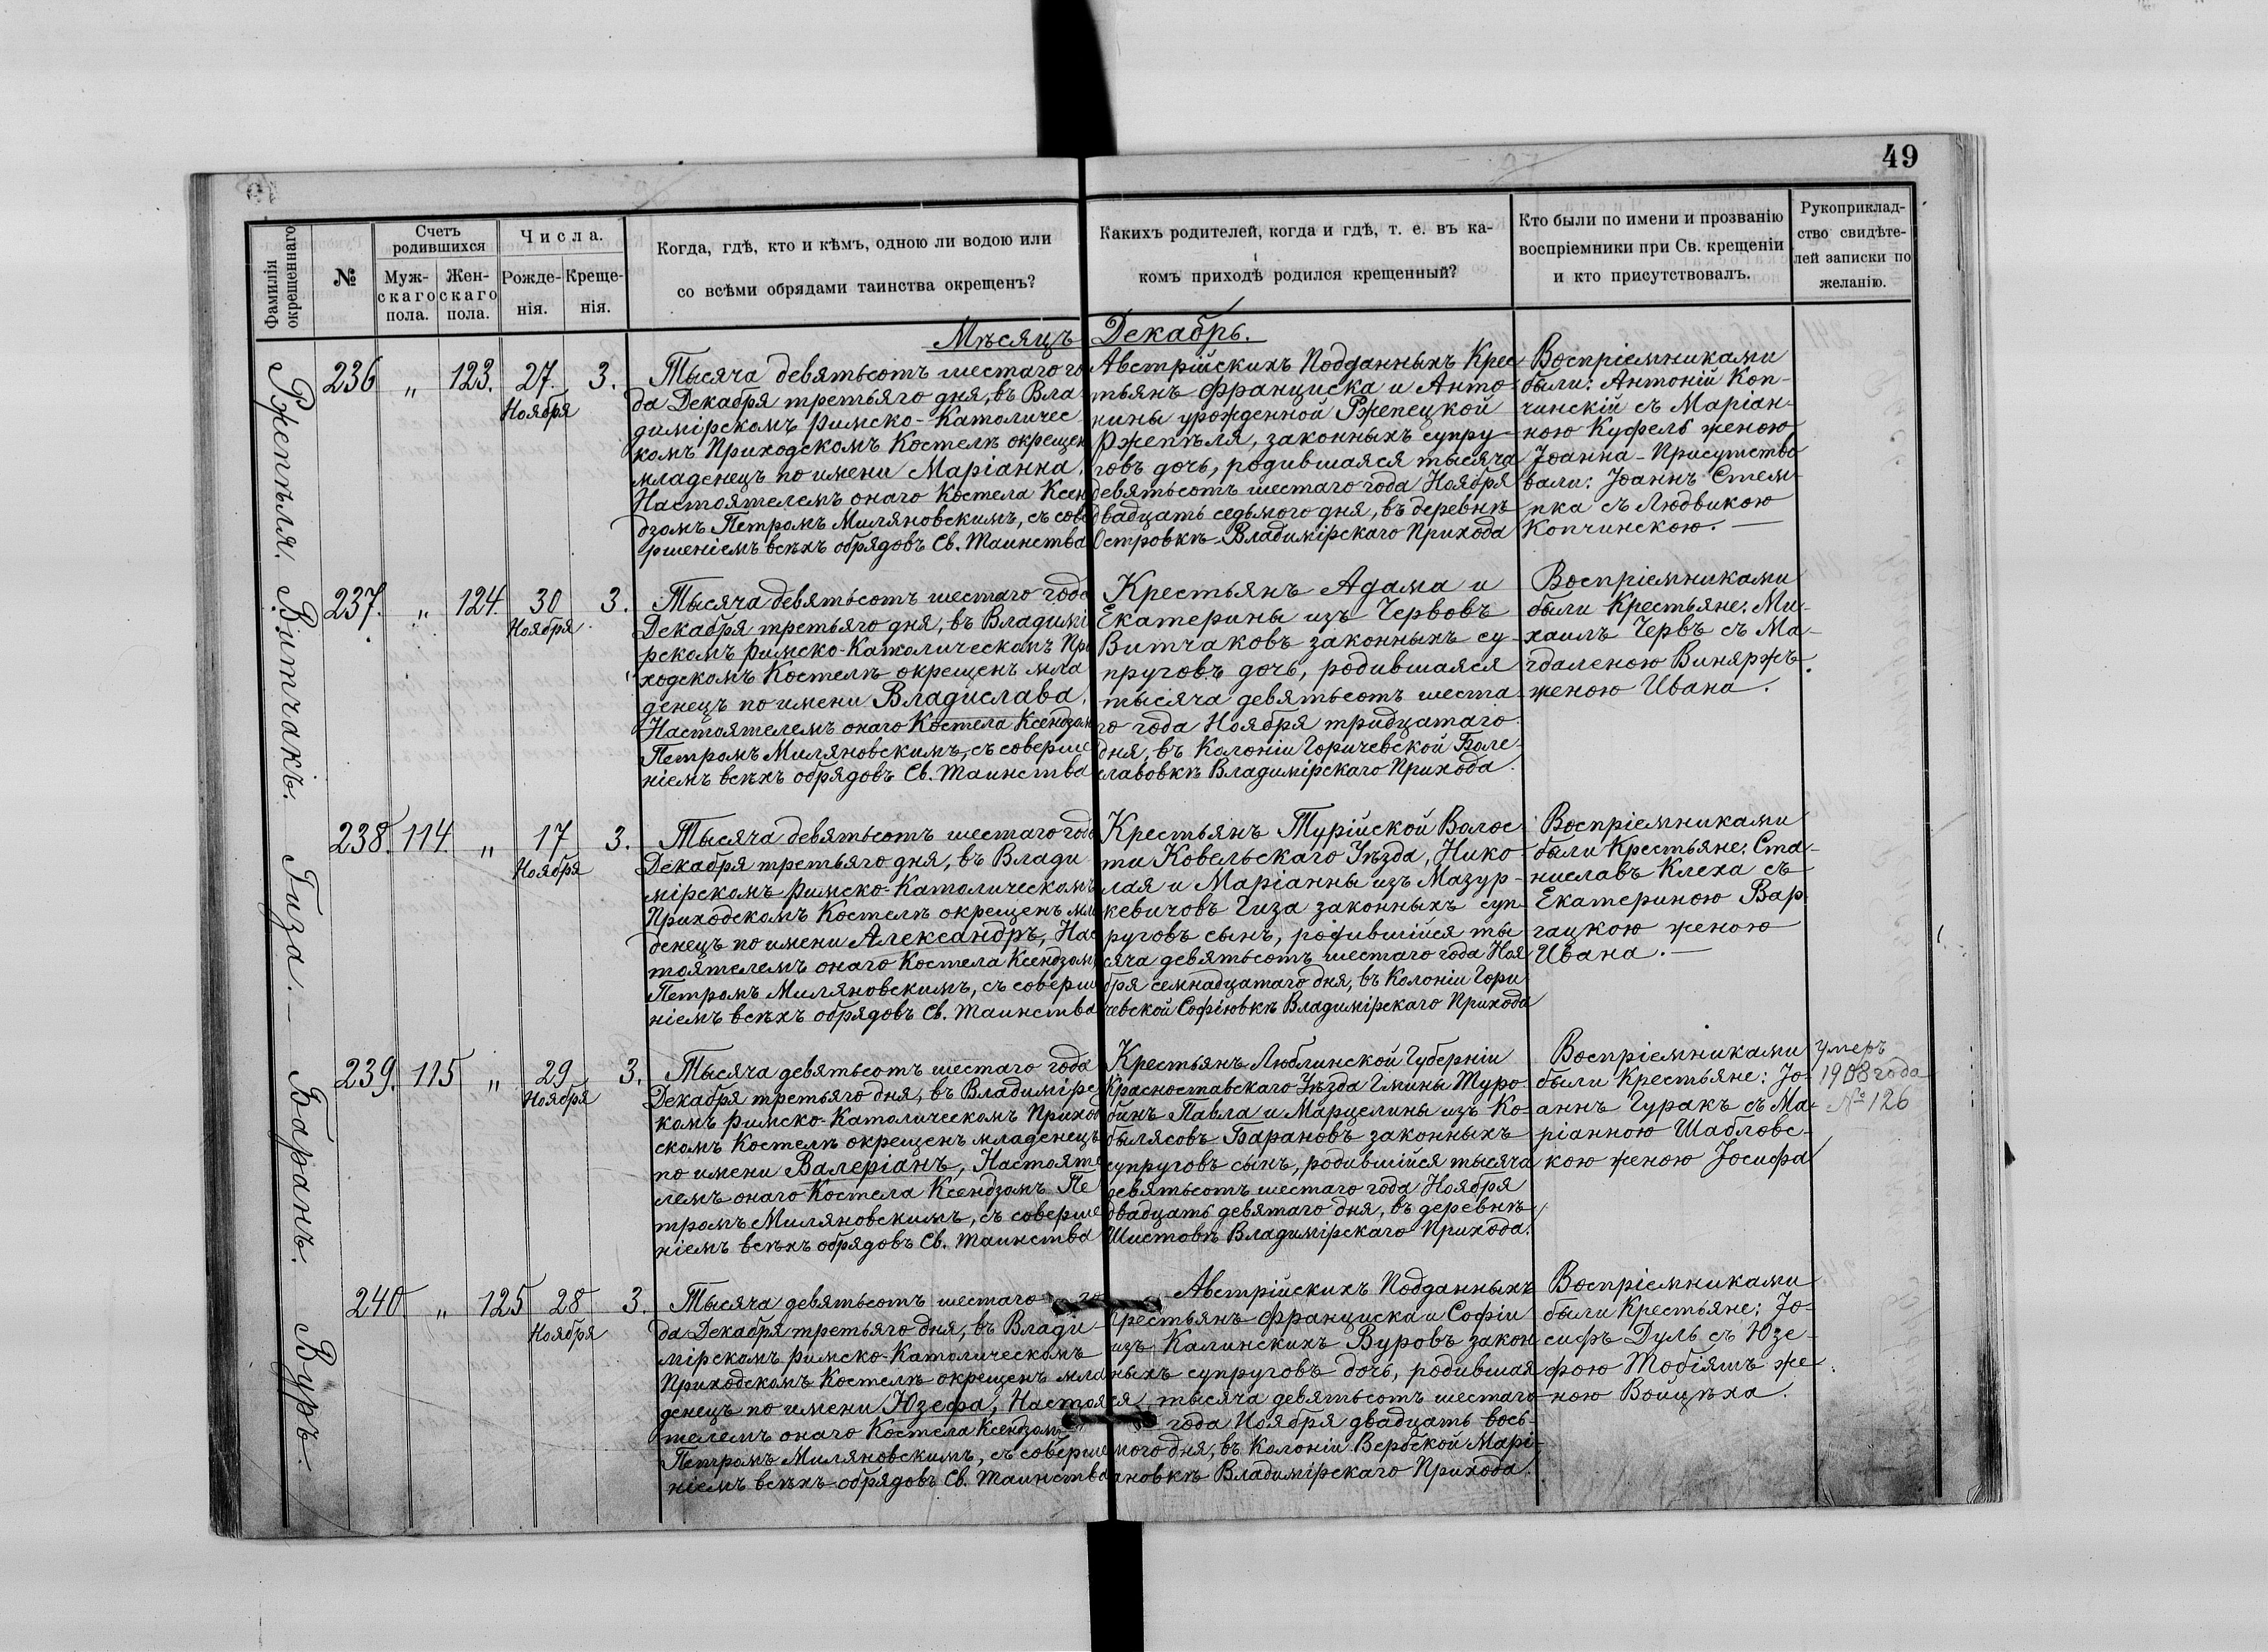 49
Фамилія окрещеннаго
№
Счетъ родившихся
Муж-
скаго
пола.
Жен-
скаго
пола.
Числа.
Рожде-
нія.
Креще-
нія.
Когда, гдѣ, кто и кѣмъ, одною ли водою или
со всѣми обрядами таинства окрещенъ?
Какихъ родителей, когда и гдѣ, т. е. въ ка-
комъ приходѣ родился крещенный?
Кто были по имени и прозванію
воспріемники при Св. крещеніи
и кто присутствовалъ.
Рукоприклад-
ство свидѣте-
лей записки по
желанію.
Мѣсяцъ Декабрь.
Ржепѣля.
236 " 123. 27. 3.
Ноября
Тысяча девятьсотъ шестаго го
да Декабря третьяго дня, въ Вла
димірскомъ Римско-Католичес
комъ Приходскомъ Костелѣ окрещен
младенецъ по имени Маріанна,
Настоятелемъ онаго Костела Ксен
дзомъ Петромъ Миляновскимъ, съ сове
ршеніемъ всѣхъ обрядовъ Св. Таинства
Австрійскихъ Подданныхъ Крес
тьянъ Франциска и Анто-
нины урожденной Ржепецкой
Ржепѣля, законныхъ супру-
говъ дочь, родившаяся тысяча
девятьсотъ шестаго года Ноября
двадцать седьмого дня, въ деревнѣ
Островкѣ Владимірскаго Прихода
Воспріемниками
были: Антоній Коп-
чинскій съ Маріан-
ною Куфель женою
Іоанна - Присутство
вали: Іоаннъ Стем-
пка съ Людвикою
Копчинскою. —
Витчакъ.
237. " 124. 30 3.
Ноября
Тысяча девятьсотъ шестаго года
Декабря третьяго дня, въ Владимі
рскомъ Римско-Католическомъ При
ходскомъ Костелѣ окрещенъ мла
денецъ по имени Владислава,
Настоятелемъ онаго Костела Ксендзом
Петромъ Миляновскимъ, съ соверше
ніемъ всѣхъ обрядовъ Св. Таинства
Крестьянъ Адама и
Екатерины изъ Червовъ
Витчаковъ законныхъ су-
пруговъ дочь, родившаяся
тысяча девятьсотъ шеста
го года Ноября тридцатаго
дня, въ Колоніи Горичевской Боле-
славовкѣ Владимірскаго Прихода.
Воспріемниками
были Крестьяне: Ми-
хаилъ Червъ съ Ма-
гдаленою Виняржъ
женою Ивана.
Гиза. —
238. 114. " 17 3.
Ноября
Тысяча девятьсотъ шестаго года
Декабря третьяго дня, въ Влади
мірскомъ Римско-Католическомъ
Приходскомъ Костелѣ окрещенъ мла
денецъ по имени Александръ, Нас
тоятелемъ онаго Костела Ксендзом
Петромъ Миляновскимъ, съ соверше
ніемъ всѣхъ обрядовъ Св. Таинства
Крестьянъ Турійской Волос
ти Ковельскаго Уѣзда, Нико-
лая и Маріанны изъ Мазур-
кевичовъ Гиза законныхъ суп-
руговъ сынъ, родившійся ты
сяча девятьсотъ шестаго года Ноя
бря семнадцатаго дня, въ Колоніи Гори
чевской Софіювкѣ Владимірскаго Прихода
Воспріемниками
были Крестьяне: Ста-
ниславъ Клеха съ
Екатериною Вар
гацкою женою
Ивана. —
Баранъ.
239. 115 " 29 3.
Ноября
Тысяча девятьсотъ шестаго года
Декабря третьяго дня, въ Владимірс
комъ Римско-Католическомъ Приход
скомъ Костелѣ окрещенъ младенецъ
по имени Валеріанъ, Настояте
лемъ онаго Костела Ксендзомъ Пе
тромъ Миляновскимъ, съ соверше
ніемъ всѣхъ обрядовъ Св. Таинства
Крестьянъ Люблинской Губерніи
Красноставскаго Уѣзда Гмины Туро
бинъ Павла и Марцелины изъ Ко-
былясовъ Барановъ законныхъ
супруговъ сынъ, родившійся тысяча
девятьсотъ шестаго года Ноября
двадцать девятаго дня, въ деревнѣ
Шистовѣ Владимірскаго Прихода.
Воспріемниками
были Крестьяне: Іо-
аннъ Гуракъ съ Ма-
ріанною Шабловс-
кою женою Іосифа
Умеръ
1908 года
№ 126
Вуръ.
240 " 125 28 3.
Ноября
Тысяча девятьсотъ шестаго го
да Декабря третьяго дня, въ Влади-
мірскомъ Римско-Католическомъ
Приходскомъ Костелѣ окрещенъ мла
денецъ по имени Юзефа, Настоя
телемъ онаго Костела Ксендзомъ
Петромъ Миляновскимъ, съ соверше
ніемъ всѣхъ обрядовъ Св. Таинства
Австрійскихъ Подданныхъ
Крестьянъ Франциска и Софіи
изъ Калинскихъ Вуровъ закон
ныхъ супруговъ дочь, родившая
ся тысяча девятьсотъ шестаго
года Ноября двадцать вось-
мого дня, въ Колоніи Вербской Марі-
ановкѣ Владимірскаго Прихода.
Воспріемниками
были Крестьяне: Іо-
сифъ Дуль съ Юзе-
фою Тобіяшъ же-
ною Войцѣха.